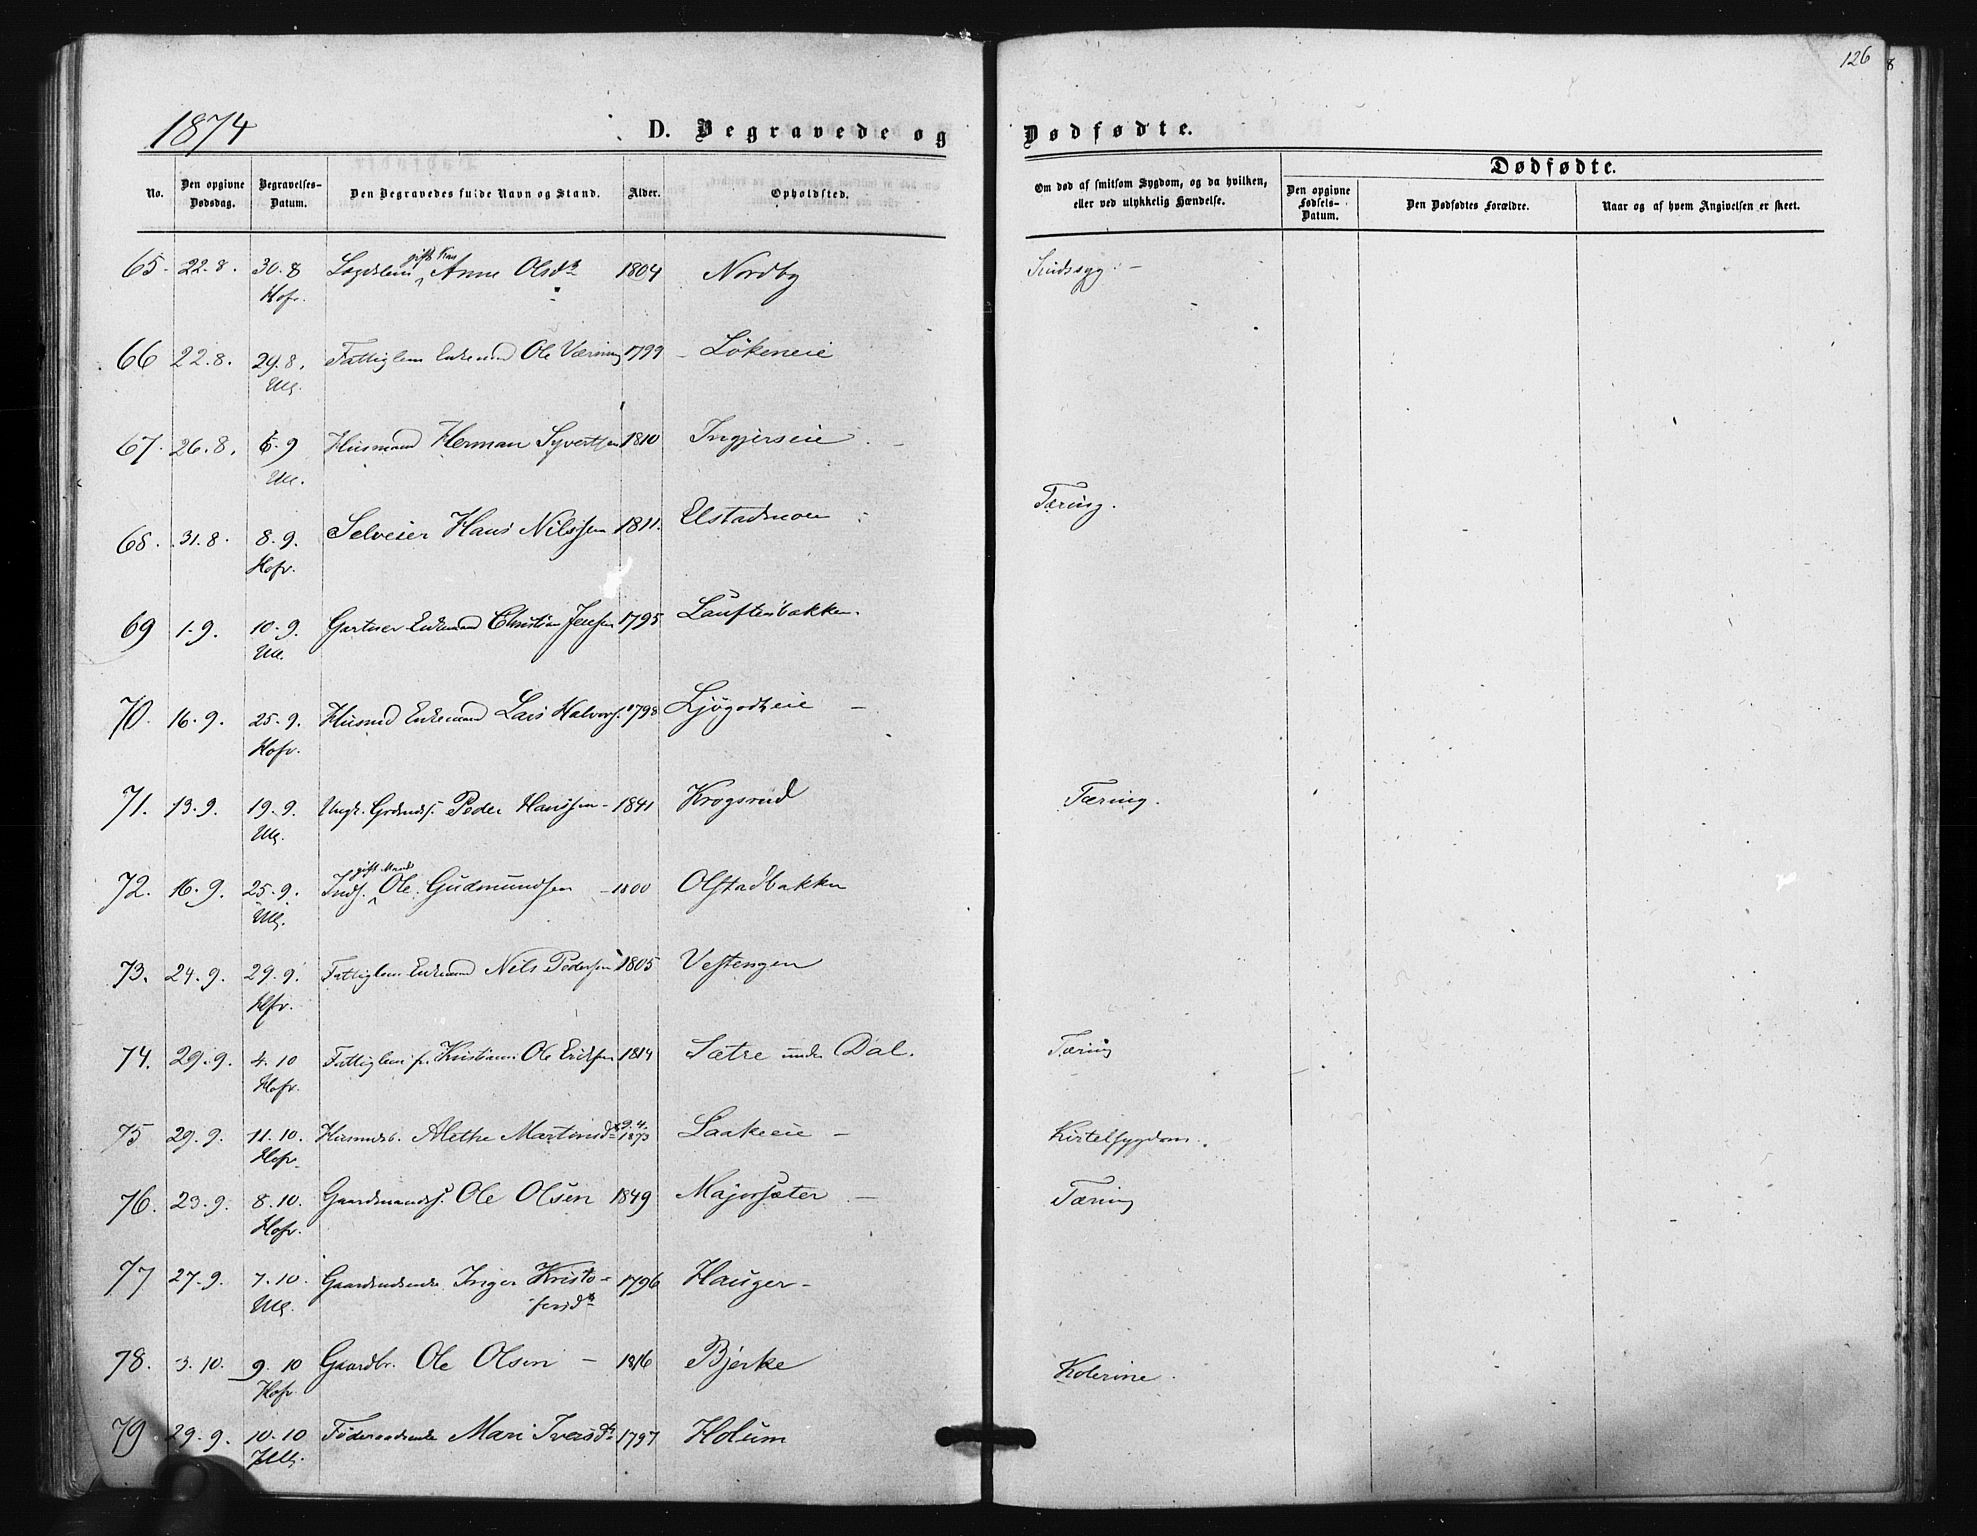 126
8
1874
D. Begravede og Dødfødte.
No.
Den opgivne Dødsdag.
Begravelses-Datum.
Den Begravedes fulde Navn og Stand.
Alder.
Opholdsted.
Om død af smitsom Sygdom, og da hvilken, eller ved ulykkelig Hændelse.
Dødfødte.
Den opgivne Fødsels-Datum.
Den Dødfødtes Forældre.
Naar og af hvem Angivelsen er skeet.
gift Kone
65. 22.8. 30.8 Lægdslem Anne Olsdtr 1804 Nordby Sindssyg. -
Hofv.
66 22.8. 29.8. Fattiglem Enkemand Ole Væring 1799 Løkeneie
Ull.
67. 26.8. 6.9 Husmand Herman Syvertsen 1810 Ingjerseie
Ull.
68. 31.8. 8.9. Selveier Hans Nilssen 1811. Elstadmoen Tæring.
Hofv.
69 1.9. 10.9. Gartner Enkemand Christian Jensen 1795
Ull.
70. 16.9. 25.9. Husmd Enkemand Lars Halvors. 1798 Ljøgodteie
Hofv.
71. 13.9. 19.9. Ungk. Grdmds. Peder Hanssen 1841 Krogsrud Tæring.
Ull.
gift Mand
72. 16.9. 25.9. Inds. Ole Gudmundsen 1800 Olstadbakken
Ull.
73. 24.9. 29.9. Fattiglem Enkemand Nils Pedersen 1805 Vestengen
Hfv.
74. 29.9. 4.10 Fattiglem fr. Kristiania Ole Eriksen 1814 Sætre under Dal. Tæring
Hofv.
75 29.9. 11.10. Husmdsb. Alethe Martinsdtr 9.4. 1873 Laakeeie Kirtelsygdom.
Hofv.
76. 23.9. 8.10. Gaardmandss. Ole Olsen 1849 Majorsæter Tæring
Hofv.
77 27.9. 7.10. Gaardmdsenke Inger Kristo- 1796 Hauger -
Ull. fersdtr
78. 3.10. 9.10 Gaardbr. Ole Olsen - 1816 Bjerke Kolerine
Hofv.
79. 29.9. 10.10 Føderaadsenke Mari Iversdtr 1797 Holum
Ull.